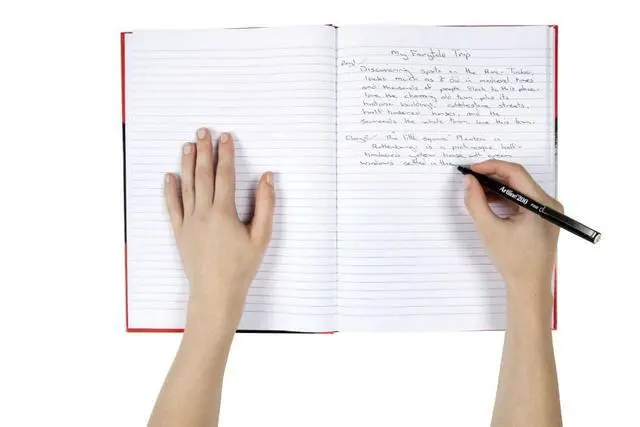 My Fairytale Trip
Day 1
Discovering spots on the River Tauber,
looks much as it did in medieval times
and thousands of people flock to this place.
love the charming old town, plus its
historic buildings, cobblestone streets,
half timbered houses, and the
surrounds the whole town, love this town.
Day 2 The little square Plonlein in
Rothenburg is a picturesque half-
timbered yellow house with green
windows settled in the
Artline 200 FINE